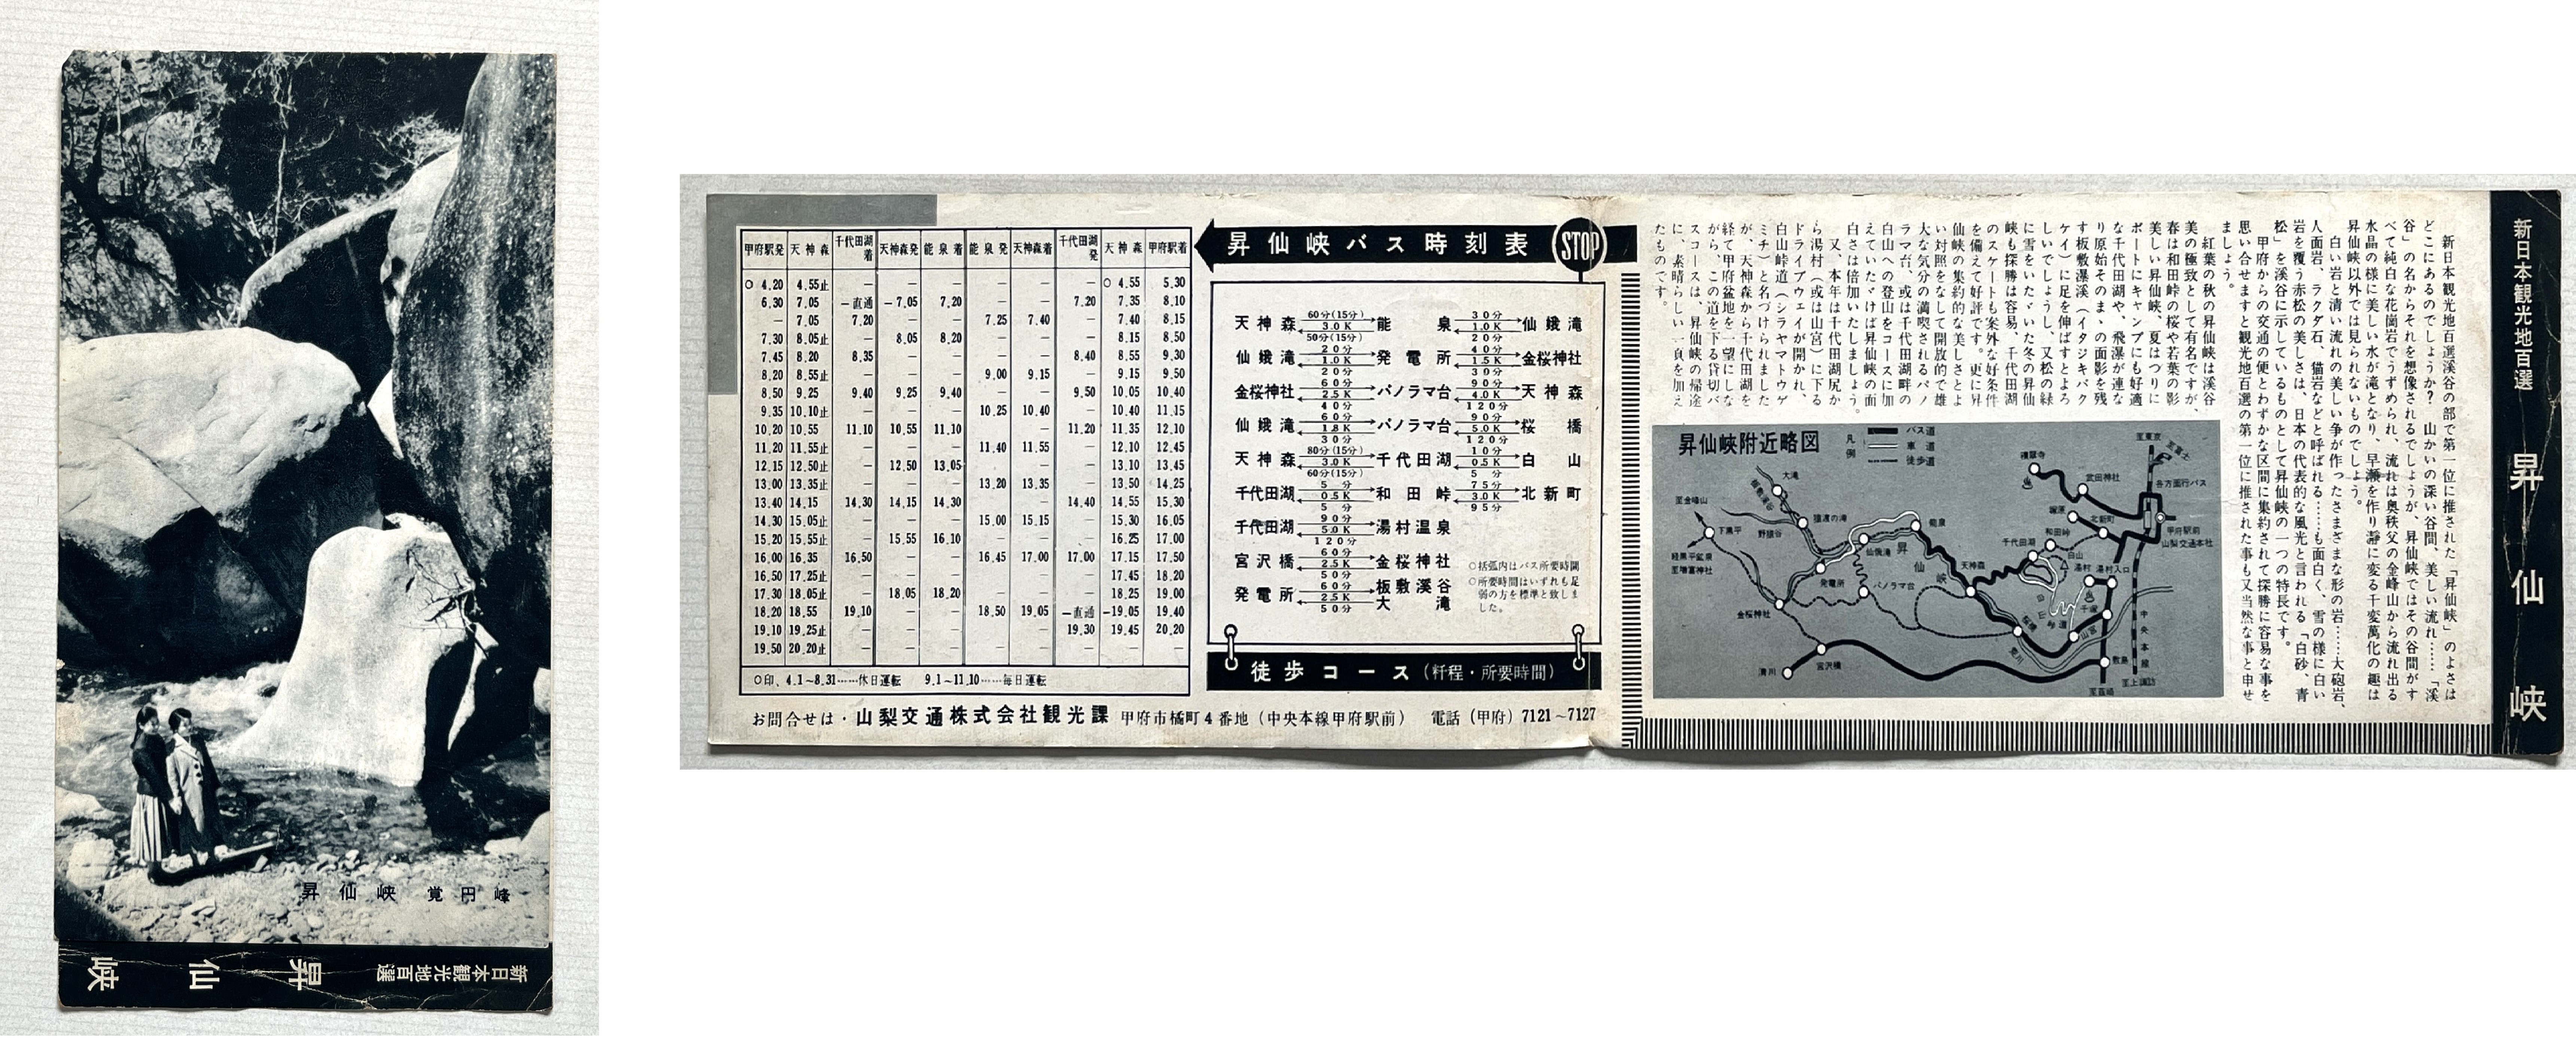 昇仙峡 覚円峰
新日本観光地百選 昇仙峡
新日本観光地百選 昇仙峡
新日本観光地百選渓谷の部で第一位に推された「昇仙峡」のよさは
どこにあるのでしょうか？山かいの深い谷間、美しい流れ……「渓
谷」の名からそれを想像されるでしょうが、昇仙峡ではその谷間がす
べて純白な花崗岩でうずめられ、流れは奥秩父の金峰山から流れ出る
水晶の様に美しい水が滝となり、早瀬を作り瀞に変る千変萬化の趣は
昇仙峡以外では見られないものでしよう。
白い岩と清い流れの美しい争が作ったさまざまな形の岩……大砲岩、
人面岩、ラクダ石、猫岩などと呼ばれる……も面白く、雪の様に白い
岩を覆う赤松の美しさは、日本の代表的な風光と言われる「白砂、青
松」を渓谷に示しているものとして昇仙峡の一つの特長です。
甲府からの交通の便とわずかな区間に集約されて探勝に容易な事を
思い合せますと観光地百選の第一位に推された事も又当然な事と申せ
ましょう。
紅葉の秋の昇仙峡は渓谷
美の極致として有名ですが、
春は和田峠の桜や若葉の影
美しい昇仙峡、夏はつりに
ボートにキャンプにも好適
な千代田湖や、飛瀑が連な
り原始そのまゝの面影を残
す板敷瀑渓（イタジキバク
ケイ）に足を伸ばすとよろ
しいでしょうし、又松の緑
に雪をいたゞいた冬の昇仙
峡も探勝は容易、千代田湖
のスケートも案外な好条件
を備えて好評です。更に昇
仙峡の集約的な美しさとよ
い対照をなして開放的で雄
大な気分の満喫されるパノ
ラマ台、或は千代田湖畔の
白山への登山をコースに加
えていたゞけば昇仙峡の面
白さは倍加いたしましょう。
又、本年は千代田湖尻か
ら湯村（或は山宮）に下る
ドライブウェイが開かれ、
白山峠道（シラヤマトウゲ
ミチ）と名づけられました
が、天神森から千代田湖を
経て甲府盆地を一望にしな
がら、この道を下る貸切バ
スコースは、昇仙峡の帰途
に、素晴らしい一頁を加え
たものです。
昇仙峡附近略図
凡例
バス道
車道
徒歩道
至東京
至富士
各方面行バス
武田神社
積翠寺
塚原
北新町
甲府駅前
山梨交通本社
和田峠
千代田湖
白山
湯村
湯村入口
千塚
白山峠道
山宮
中央本線
敷島
至上諏訪
至韮崎
荒川
桜橋
天神森
昇仙峡
能泉
仙娥滝
パノラマ台
発電所
金桜神社
宮沢橋
清川
大滝
板敷渓谷
野猿谷
至金峰山
下黒平
昇仙峡バス時刻表 STOP
天神森 60分(15分) 3.0K 50分(15分) 能泉 30分 1.0K 20分 仙娥滝
仙娥滝 20分 1.0K 20分 発電所 40分 1.5K 30分 金桜神社
金桜神社 60分 2.5K 40分 パノラマ台 90分 4.0K 120分 天神森
仙娥滝 60分 1.8K 30分 パノラマ台 90分 5.0K 120分 桜橋
天神森 80分(15分) 3.0K 60分(15分) 千代田湖 10分 0.5K 5分 白山
千代田湖 5分 0.5K 5分 和田峠 75分 3.0K 95分 北新町
千代田湖 90分 5.0K 120分 湯村温泉
宮沢橋 60分 2.5K 50分 金桜神社
発電所 60分 2.5K 50分 板敷渓谷大滝
○括弧内はバス所要時間
○所要時間はいずれも足
弱の方を標準と致しま
した。
徒歩コース（粁程・所要時間）
甲府駅発 天神森 千代田湖着 天神森発 能泉着 能泉発 天神森着 千代田湖発 天神森 甲府駅着
○4.20 4.55止 — — — — — — ○4.55 5.30
6.30 7.05 —直通 —7.05 7.20 — — 7.20 7.35 8.10
— 7.05 7.20 — — 7.25 7.40 — 7.40 8.15
7.30 8.05止 — 8.05 8.20 — — — 8.15 8.50
7.45 8.20 8.35 — — — — 8.40 8.55 9.30
8.20 8.55止 — — — 9.00 9.15 — 9.15 9.50
8.50 9.25 9.40 9.25 9.40 — — 9.50 10.05 10.40
9.35 10.10止 — — — 10.25 10.40 — 10.40 11.15
10.20 10.55 11.10 10.55 11.10 — — 11.20 11.35 12.10
11.20 11.55止 — — — 11.40 11.55 — 12.10 12.45
12.15 12.50止 — 12.50 13.05 — — — 13.10 13.45
13.00 13.35止 — — — 13.20 13.35 — 13.50 14.25
13.40 14.15 14.30 14.15 14.30 — — 14.40 14.55 15.30
14.30 15.05止 — — — 15.00 15.15 — 15.30 16.05
15.20 15.55止 — 15.55 16.10 — — — 16.25 17.00
16.00 16.35 16.50 — — 16.45 17.00 17.00 17.15 17.50
16.50 17.25止 — — — — — — 17.45 18.20
17.30 18.05止 — 18.05 18.20 — — — 18.25 19.00
18.20 18.55 19.10 — — 18.50 19.05 —直通 —19.05 19.40
19.10 19.25止 — — — — — 19.30 19.45 20.20
19.50 20.20止 — — — — — — — —
○印、4.1〜8.31……休日運転 9.1〜11.10……毎日運転
お問合せは・山梨交通株式会社観光課 甲府市橘町4番地（中央本線甲府駅前） 電話（甲府）7121〜7127